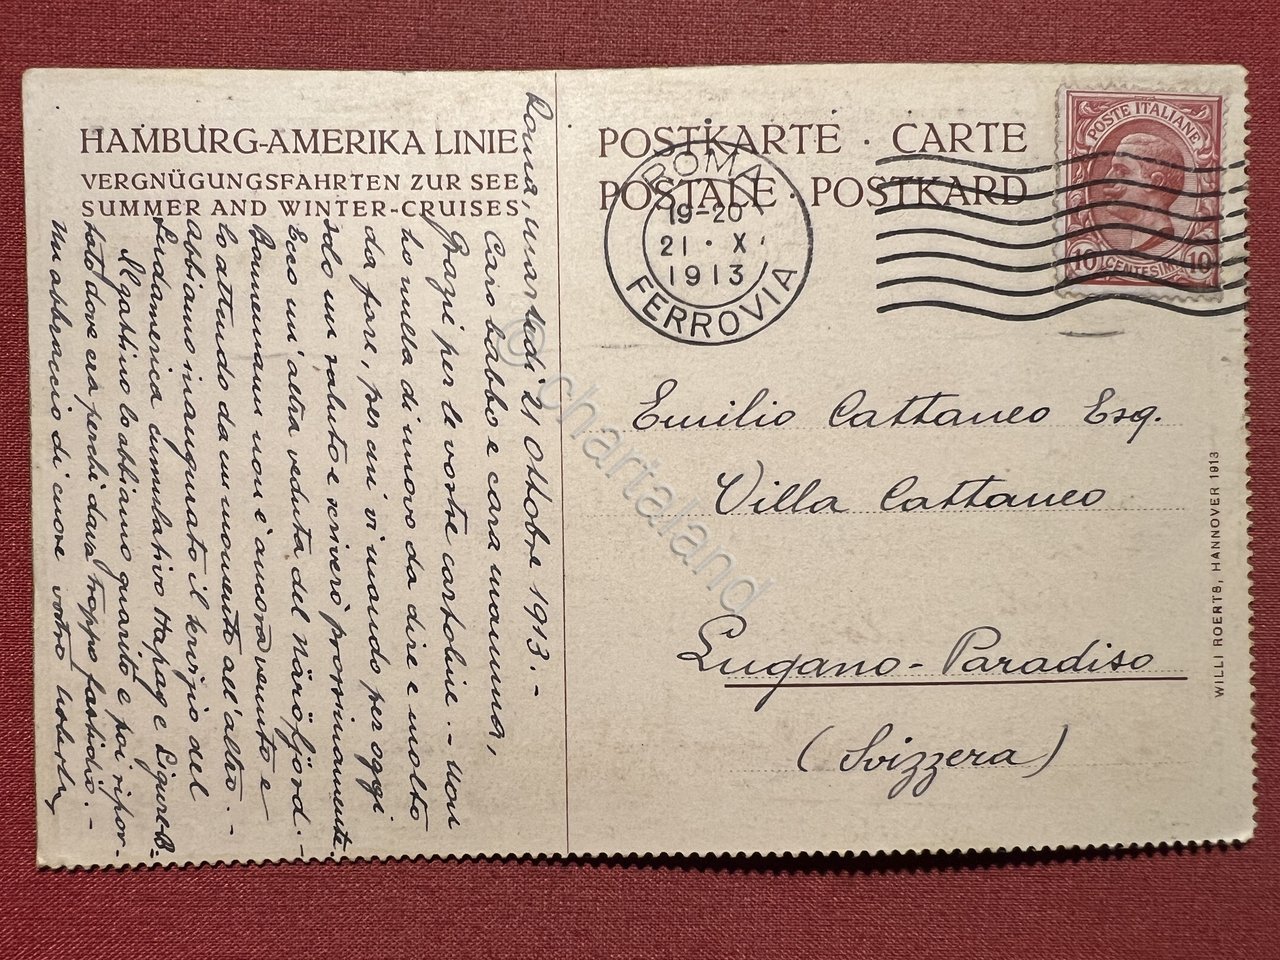 HAMBURG-AMERIKA LINIE
VERGNÜGUNGSFAHRTEN ZUR SEE
SUMMER AND WINTER-CRUISES
Roma, martedì 21 Ottobre 1913. -
Caro babbo e cara mamma,
Grazie per le vostre cartoline. - Non
ho nulla di nuovo da dire e molto
da fare, per cui vi mando per oggi
solo un saluto e scriverò prossimamente.
Ecco un'altra veduta del Näröfjord. -
Bannemann non è ancora venuto e
lo attendo da un momento all'altro. -
Abbiamo inaugurato il servizio del
Sudamerica cumulativo Hapag e Ligure-B.
Il gattino lo abbiamo guarito e poi ripor-
tato dove era perchè dava troppo fastidio. -
Un abbraccio di cuore vostro
POSTKARTE · CARTE
POSTALE · POSTKARD
ROMA
19-20
21 · X.
1913
FERROVIA
POSTE ITALIANE
10 CENTESIMI 10
Emilio Cattaneo Esq.
Villa Cattaneo
Lugano - Paradiso
(Svizzera)
WILLI ROERTS, HANNOVER 1913
© chartaland